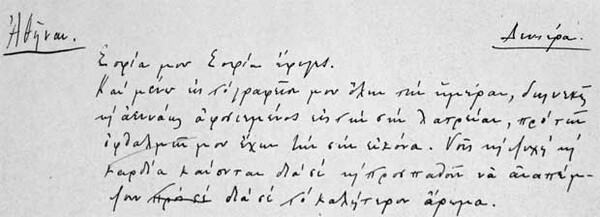 Ἀθῆναι. Δευτέρα.
Σοφία μου Σοφία ἔφυγες.
Καὶ μένω εἰς τὸ γραφεῖον μου ὅλην τὴν ἡμέραν, διηνεκῶς
κὴ ἀεννάως ἀφοσιωμένος εἰς τὴν σὴν λατρείαν, πρὸ τῶν
ὀφθαλμῶν μου ἔχων τὴν σὴν εἰκόνα. Νοῦς κὴ ψυχὴ κὴ
καρδία καίονται διὰ σὲ κὴ προσπαθοῦν νὰ ἀναπέμ-
ψουν πρὸς σὲ διὰ σὲ τὸ καλήτερον ἄρωμα.